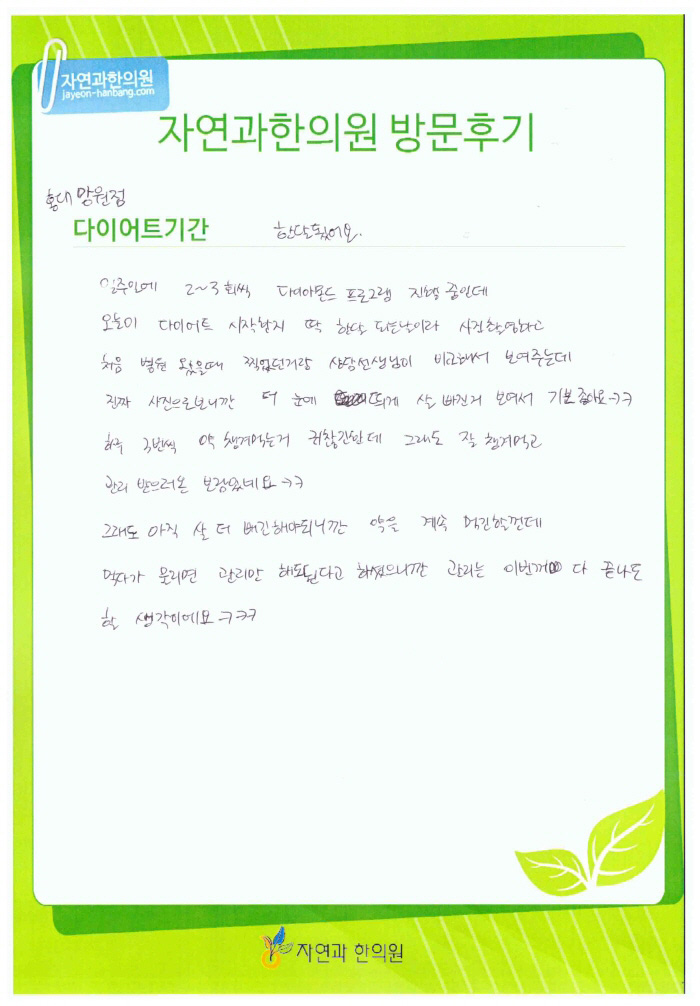 자연과한의원
jayeon-hanbang.com
자연과한의원 방문후기
홍대 망원점
다이어트기간 한달됬어요.
일주일에 2~3회씩 다이아몬드 프로그램 진행 중인데
오늘이 다이어트 시작한지 딱 한달 되는날이라 사진촬영하고
처음 병원 왔을때 찍었던거랑 상담선생님이 비교해서 보여주는데
진짜 사진으로보니깐 더 눈에 띄게 살 빠진거 보여서 기분 좋아요ㅋㅋ
하루 3번씩 약 챙겨먹는거 귀찮긴한데 그래도 잘 챙겨먹고
관리 받으러온 보람있네요 ㅋㅋ
그래도 아직 살 더 빼긴해야되니깐 약은 계속 먹긴할껀데
먹다가 물리면 관리만 해도된다고 하셨으니깐 관리는 이번꺼 다 끝나도
할 생각이에요 ㅋㅋㅋ
자연과 한의원